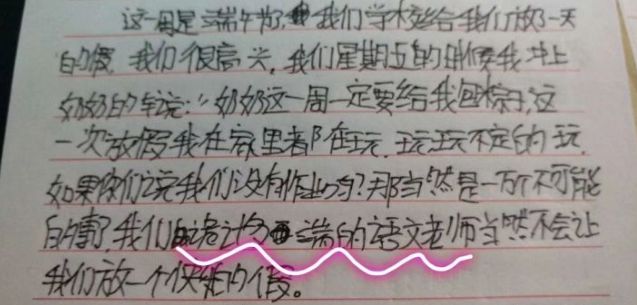 这一周是端午节，我们学校给我们放了一天
的假，我们很高兴，我们星期五的时候我冲上
奶奶的车说：“奶奶这一周一定要给我包粽子，这
一次放假我在家里都在玩，玩玩不定的玩，
如果你们说我们没有作业吗？那当然是一万个不可能
的事了，我们诡计多端的语文老师当然不会让
我们放一个快的假。